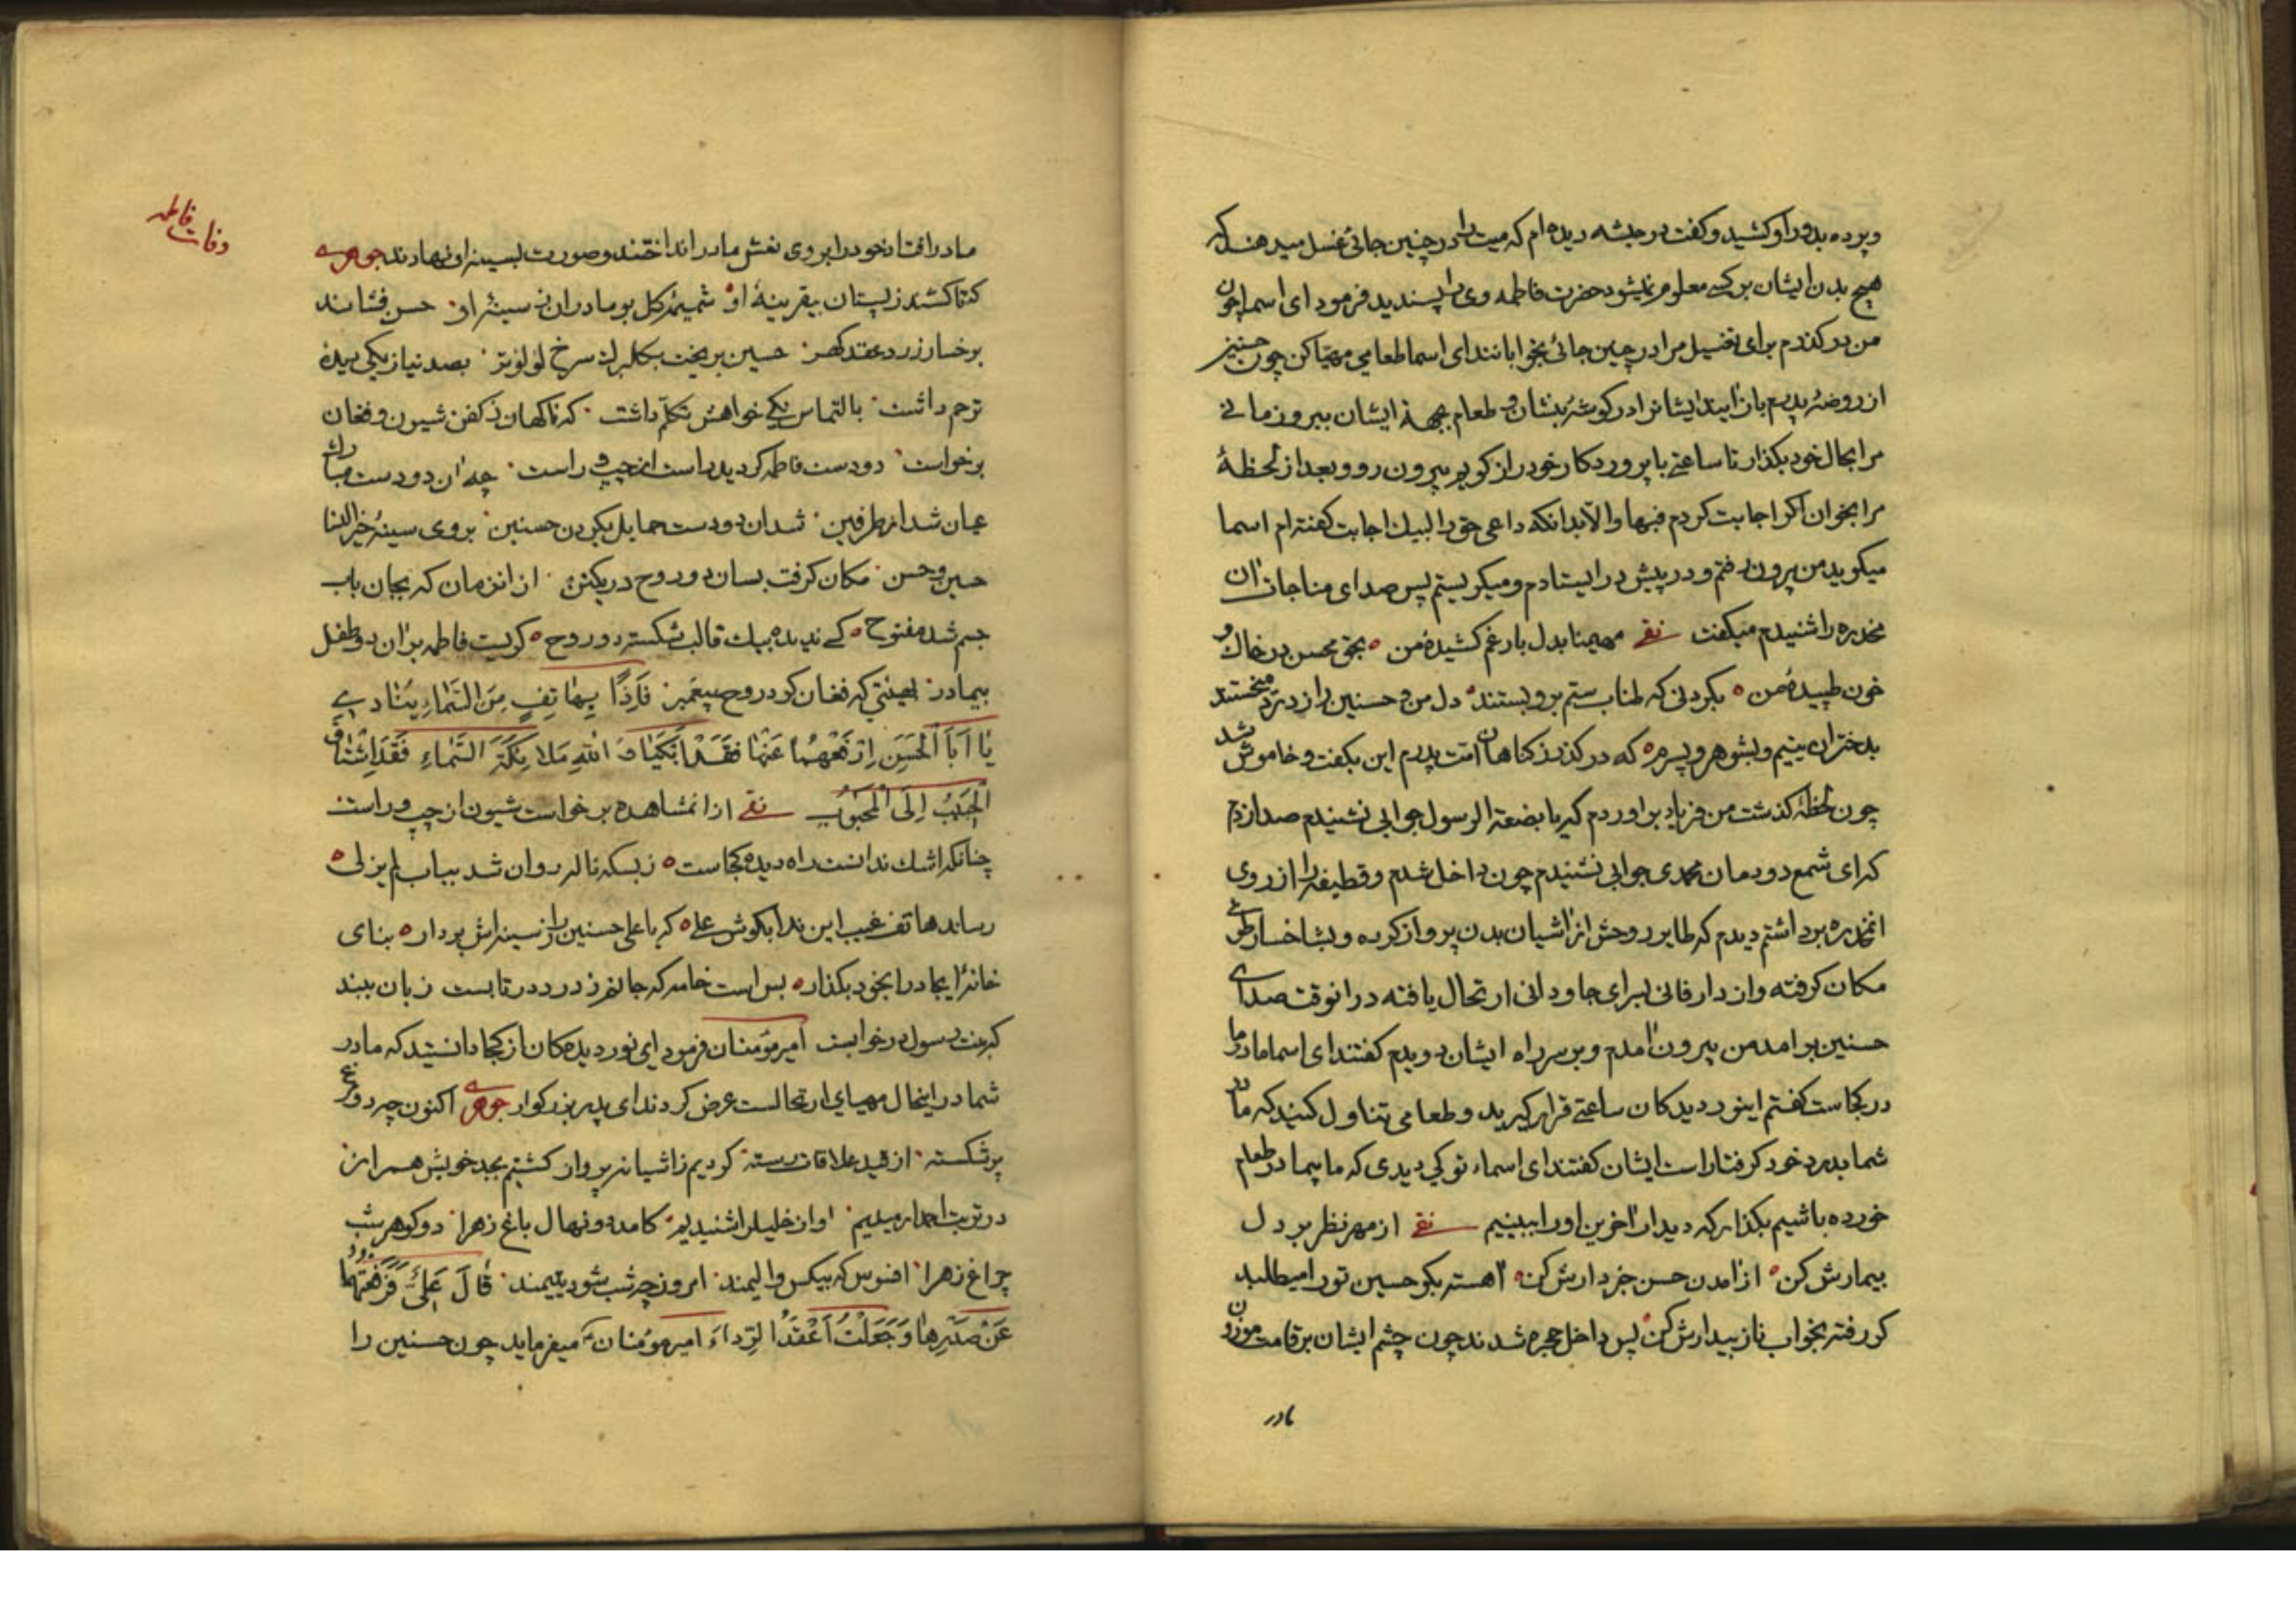 و پرده بدور او کشید و گفت در حبشه دیده‌ام که میت را در چنین جائی غسل میدهند که
هیچ بدن ایشان بر کسی معلوم نمیشود حضرت فاطمه وی را پسندید فرمود ای اسما چون
من درگذرم برای تغسیل مرا در چنین جائی بخوابانند ای اسما طعامی مهیا کن چون حسنین
از روضهٔ پدرم باز آیند ایشانرا در گوشهٔ بنشان و طعام بجهة ایشان ببر و زمانی
مرا بحال خود بگذار تا ساعتی با پروردگار خود راز گویم بیرون رو و بعد از لحظهٔ
مرا بخوان اگر اجابت کردم فبها والا بدانکه داعی حق را لبیك اجابت گفته‌ام اسما
میگوید من بیرون رفتم و در پیش در ایستادم و میگریستم پس صدای مناجات آن
مخدره را شنیدم میگفت مهیمنا بدل بار غم کشیدهٔ من بحق محسن در خاك و
خون طپیدهٔ من بگردنی که طناب ستم برو بستند دل من و حسنین را ز درد خستند
بدختران یتیم و بشوهر و پسرم که درگذر ز گناهان امت پدرم این بگفت و خاموش شد
چون لحظهٔ گذشت من فریاد براوردم که یا بضعة الرسول جوابی نشنیدم صدا زدم
که ای شمع دودمان محمدی جوابی نشنیدم چون داخل شدم و قطیفه را از روی
انمخدره برداشتم دیدم که طایر روحش از آشیان بدن پرواز کرده و بشاخسار طوبی
مکان گرفته و از دار فانی بسرای جاودانی ارتحال یافته در انوقت صدای
حسنین برامد من بیرون آمدم و بر سر راه ایشان دویدم گفتند ای اسما مادر ما
در کجاست گفتم اینور دیدکان ساعتی قرار گیرید و طعامی تناول کنید که مادر
شما بدرد خود گرفتار است ایشان گفتند ای اسماء تو کی دیدی که ما بیمادر طعام
خورده باشیم بگذار که دیدار آخرین او را ببینیم از مهر نظر بر دل
بیمارش کن از آمدن حسن خبردارش کن آهسته بگو حسین تو را میطلبد
گو رفته بخواب ناز بیدارش کن پس داخل حجره شدند چون چشم ایشان بر قامت موزون
مادر
وفات فاطمه
مادر افتاد خود را بروی نعش مادر انداختند و صورت بسینهٔ او نهادند جوهری
حسن فشاند
برخسار زرد عقد گهر حسین بریخت بگلبرك سرخ لؤلؤ تر بصد نیاز یکی دیدهٔ
ترحم داشت بالتماس یکی خواهش تکلم داشت که ناگهان ز کفن شیون و فغان
برخواست دو دست فاطمه گردید راست از چپ و راست چه آن دو دست مبارك
عیان شد از طرفین شد آن دو دست حمایل بگردن حسنین بروی سینهٔ خیر النسا
حسین و حسن مکان گرفت بسان دو روح در یکتن از انزمان که بجان باب
جسم شد مفتوح کسی ندیده بیك قالب شکسته دو روح گریست فاطمه بر آن دو طفل
بیمادر که فغان کرد روح پیغمبر فَاِذًا بِهاتِفٍ مِنَ السَّماءِ یُنادی
یا اَبَا الْحَسَنِ اِرْفَعْهُما عَنْها فَقَدْ اَبْکَیا وَ اللهِ مَلائِکَةَ السَّماءِ فَقَدِ اشْتاقَ
الْحَبیبُ اِلَی الْمَحْبُوبِ از انمشاهده برخواست شیون از چپ و راست
چنانکه اشك ندانست راه دیده کجاست ز بسکه ناله روان شد بباب لم یزلی
رساند هاتف غیب این ندا بگوش علی که یا علی حسنین را ز سینه‌اش بردار بنای
خانهٔ ایجاد را بخود بگذار بس است خامه که جانم ز درد در تابست زبان ببند
که بنت رسول در خوابست امیرمؤمنان فرمود ای نور دیدکان از کجا دانستید که مادر
شما در اینحال مهیای ارتحالست عرض کردند ای پدر بزرگوار جوهری اکنون چه دو مرغ
پر شکسته از قید علاقات رسته کردیم ز آشیانه پرواز گشتیم بجد خویش همراز
در تربت رسیدیم اواز خلیل را شنیدیم کامد دو نهال باغ زهرا دو گوهر شب
چراغ زهرا افسوس که بیکس و الیمند امروز چه شب شود یتیمند قالَ عَلِیٌّ فَرَفَعْتُهُما
عَنْ صَدْرِها وَ جَعَلْتُ اَعْقَدُ الرِّداءَ امیرمؤمنان میفرماید چون حسنین را